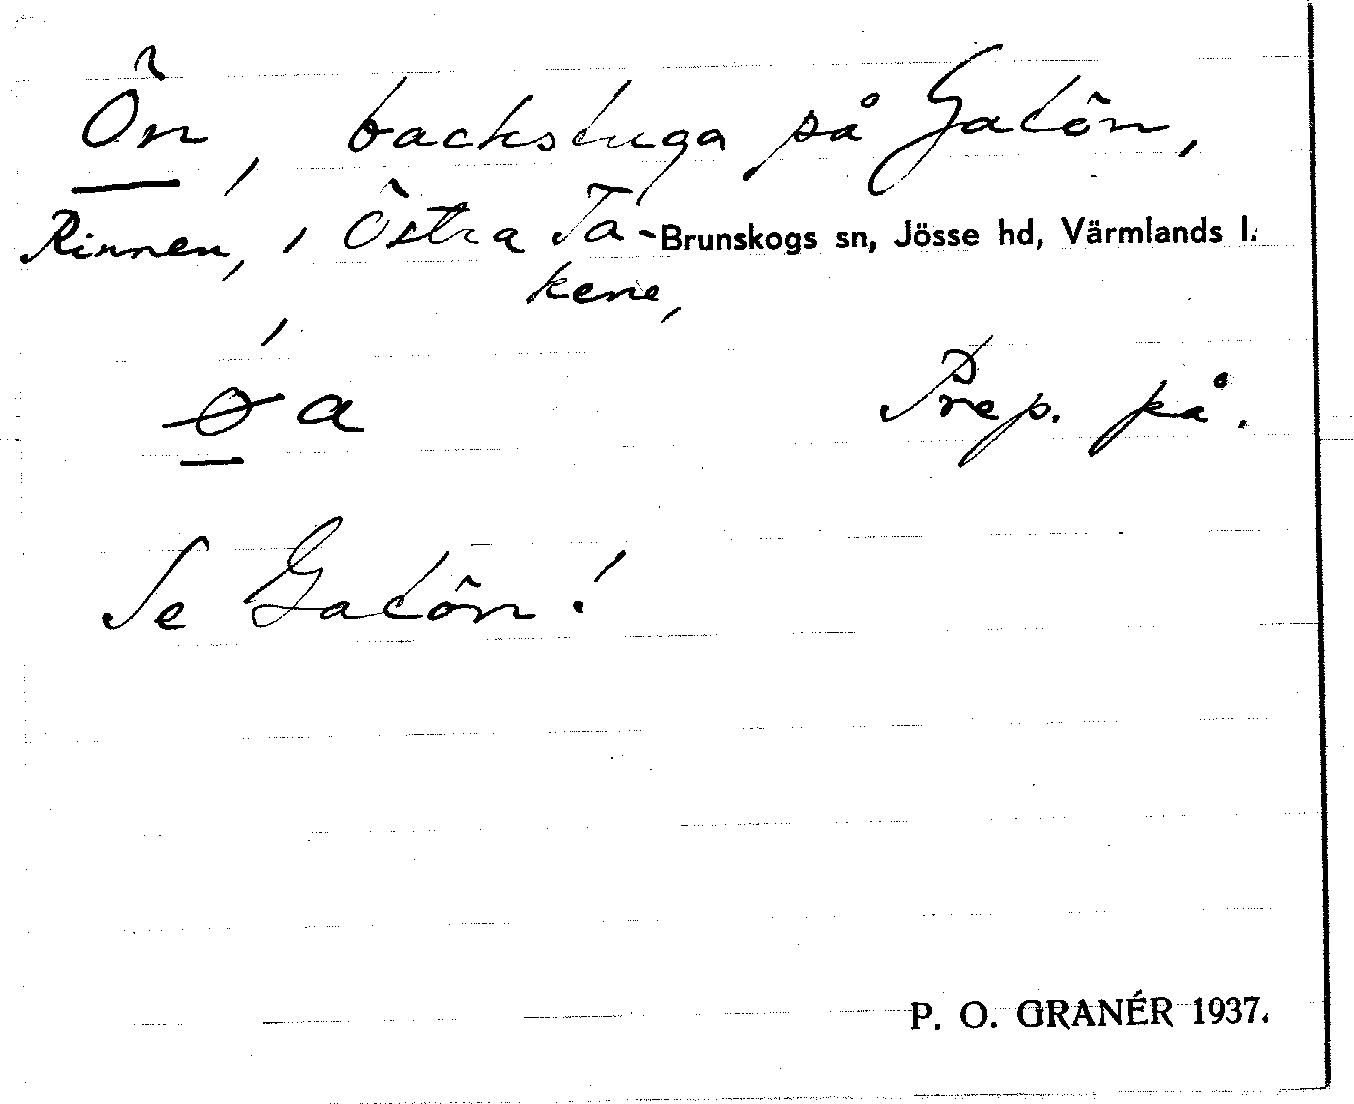 Ön, backstuga på Gatön,
Rinnen, i Östra Ta- Brunskogs sn, Jösse hd, Värmlands l.
kene,
ø̀a Prep. på.
Se Gatön!
P. O. GRANÉR 1937.